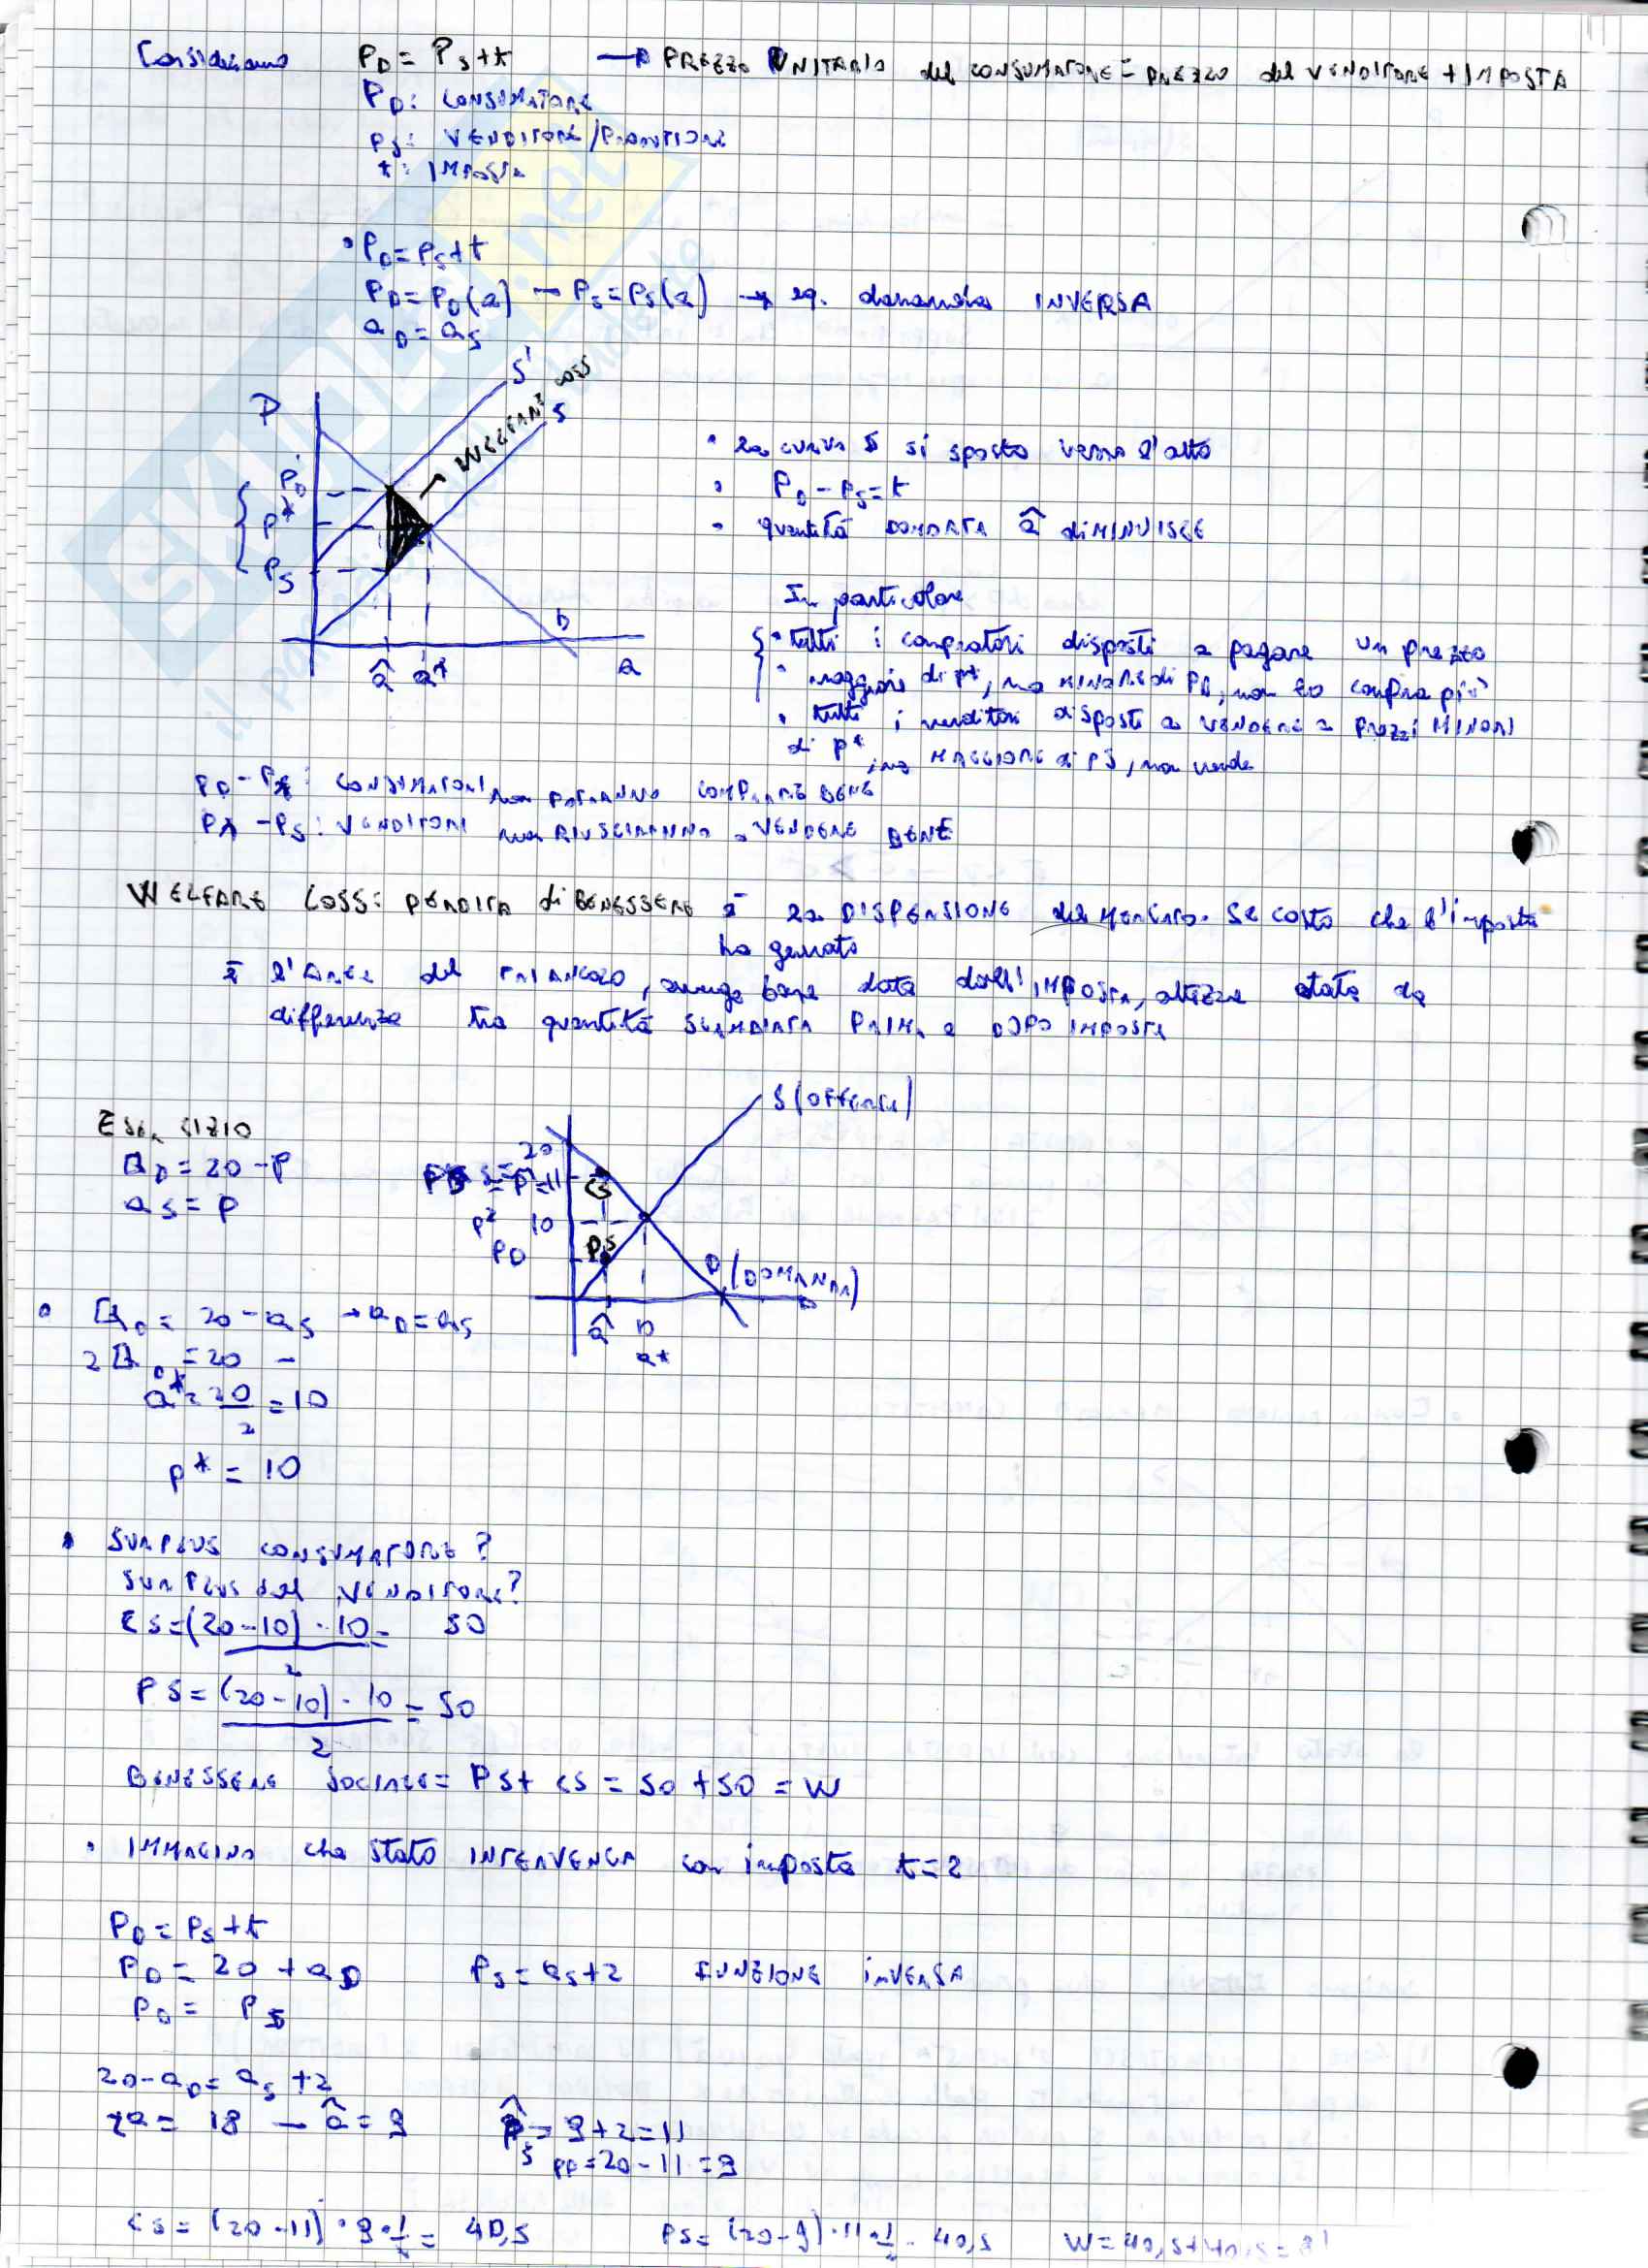 Consideriamo PD = PS + t → PREZZO UNITARIO del CONSUMATORE = PREZZO del VENDITORE + IMPOSTA
PD: CONSUMATORE
PS: VENDITORE/PRODUTTORE
t: IMPOSTA
• PD = PS + t
PD = PD(Q) – PS = PS(Q) → eq. domanda INVERSA
QD = QS
S'
WELFARE LOSS
S
P
PD'
P*
PS
D
Q̂ Q* Q
• La curva S si sposta verso l'alto
• PD - PS = t
• quantità DOMDATA Q̂ diMINUISCE
In particolare
• tutti i compratori disposti a pagare un prezzo
• maggiore di p*, ma MINORE di PD, non lo compra più
• tutti i venditori disposti a VENDERE a PREZZI MINORI
di p*, ma MAGGIORE di PS, non vende
PD - P*: CONSUMATORI non POTRANNO COMPRARE BENE
P* - PS: VENDITORI non RIUSCIRANNO a VENDERE BENE
WELFARE LOSS: PERDITA di BENESSERE è la DISPERSIONE del MERCATO. Il costo che l'imposta
ha genrato
è l'AREA del TRIANGOLO, avente base data dall'IMPOSTA, altezza data da
differenza tra quantità SCAMBIATA PRIMA e DOPO IMPOSTA
ESERCIZIO
QD = 20 - P
QS = P
S (OFFERTA)
20
= P = 11
CS
P* 10
PD
PS
D (DOMANDA)
Q̂ D
Q*
• QD = 20 - QS → QD = QS
2QD = 20 –
Q* = 20/2 = 10
P* = 10
• SURPLUS CONSUMATORE?
SURPLUS del VENDITORE?
CS = (20 - 10) · 10 / 2 = 50
PS = (20 - 10) · 10 / 2 = 50
BENESSERE SOCIALE = PS + CS = 50 + 50 = W
• IMMAGINO che Stato INTERVENGA con imposta t = 2
PD = PS + t
PD = 20 + QD PS = QS + 2 FUNZIONE INVERSA
PD = PS
20 - QD = QS + 2
2Q = 18 – Q̂ = 9 P̂S = 9 + 2 = 11
PD = 20 - 11 = 9
CS = (20 - 11) · 9 · 1/2 = 40,5 PS = (20 - 9) · 11 · 1/2 = 40,5 W = 40,5 + 40,5 = 81